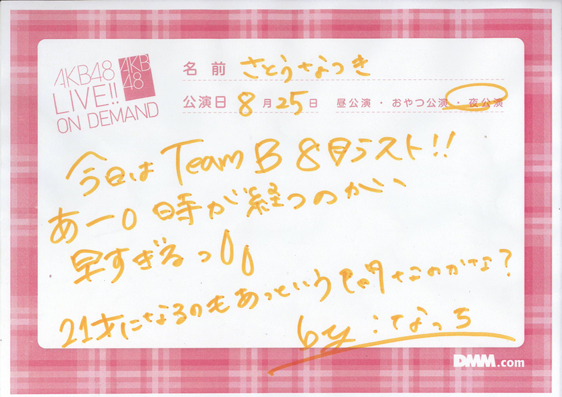 AKB48
LIVE!!
ON DEMAND
AKB
48
名前 さとうなつき
公演日 8月25日 昼公演・おやつ公演・夜公演
今日は Team B 8月ラスト!!
あー 時が経つのが
早すぎるっ
21才になるのもあっという間なのかな?
by:なっち
DMM.com